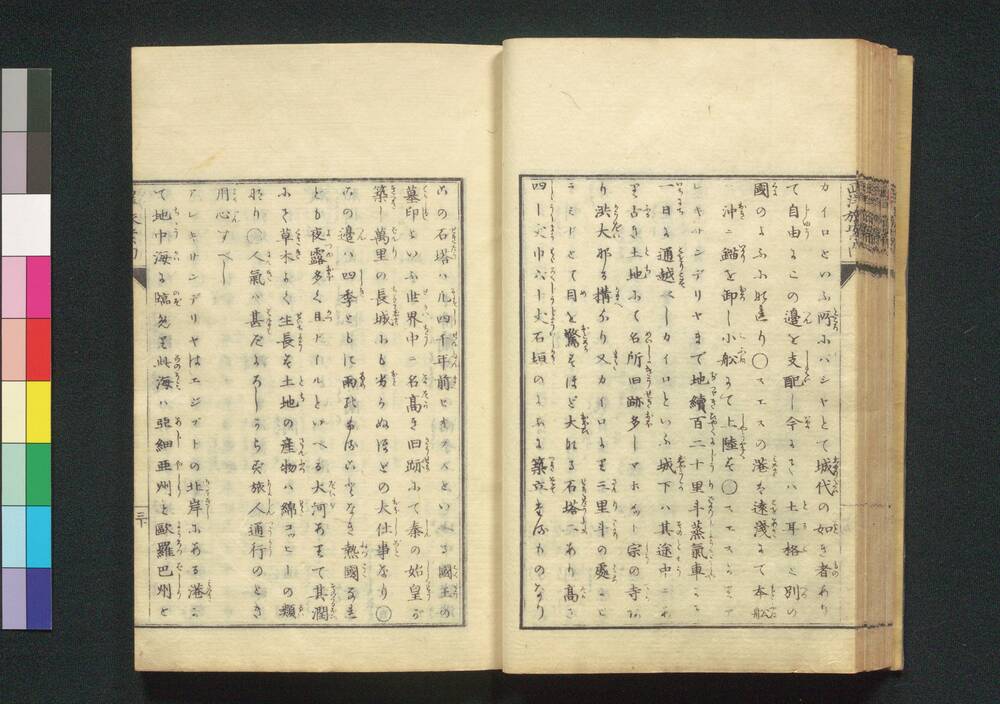 カイロといふ所にパシヤとて城代の如き者あり
て自由にこの邊を支配し今にては土耳格と別の
國のよふになり○スエスの港は遠淺にて本船
沖に錨を卸し小船にて上陸す○スエスよりア
レキサンデリヤまで地續百二十里斗蒸氣車にて
一日に通越べしカイロといふ城下ハ其途中にあ
り古き土地にて名所旧跡多しマホメツト宗の寺
り洪大なる構あり又カイロより三里斗の處にピ
ラミドとて目を驚すほど大なる石塔二ありさ
四十丈巾六十丈石垣のよふに築立たるものなり
この石塔ハ凡四千年前といへる國王の
墓印といふ世界中に名高き旧跡にて秦の始皇が
築し萬里の長城にも劣らぬほどの大仕事なり○
この邊ハ四季ともに雨なき熱國なれ
とも夜露多く且ナールといへる大河ありて其潤
にて草木よく生長す土地の産物ハ綿コッヒーの類
なり○人氣ハ甚だよろしからず旅人通行のとき
用心すべし
アレキサンデリヤはエジプトの北岸にある港に
て地中海に臨り此海ハ亞細亜州と歐羅巴州と
三下